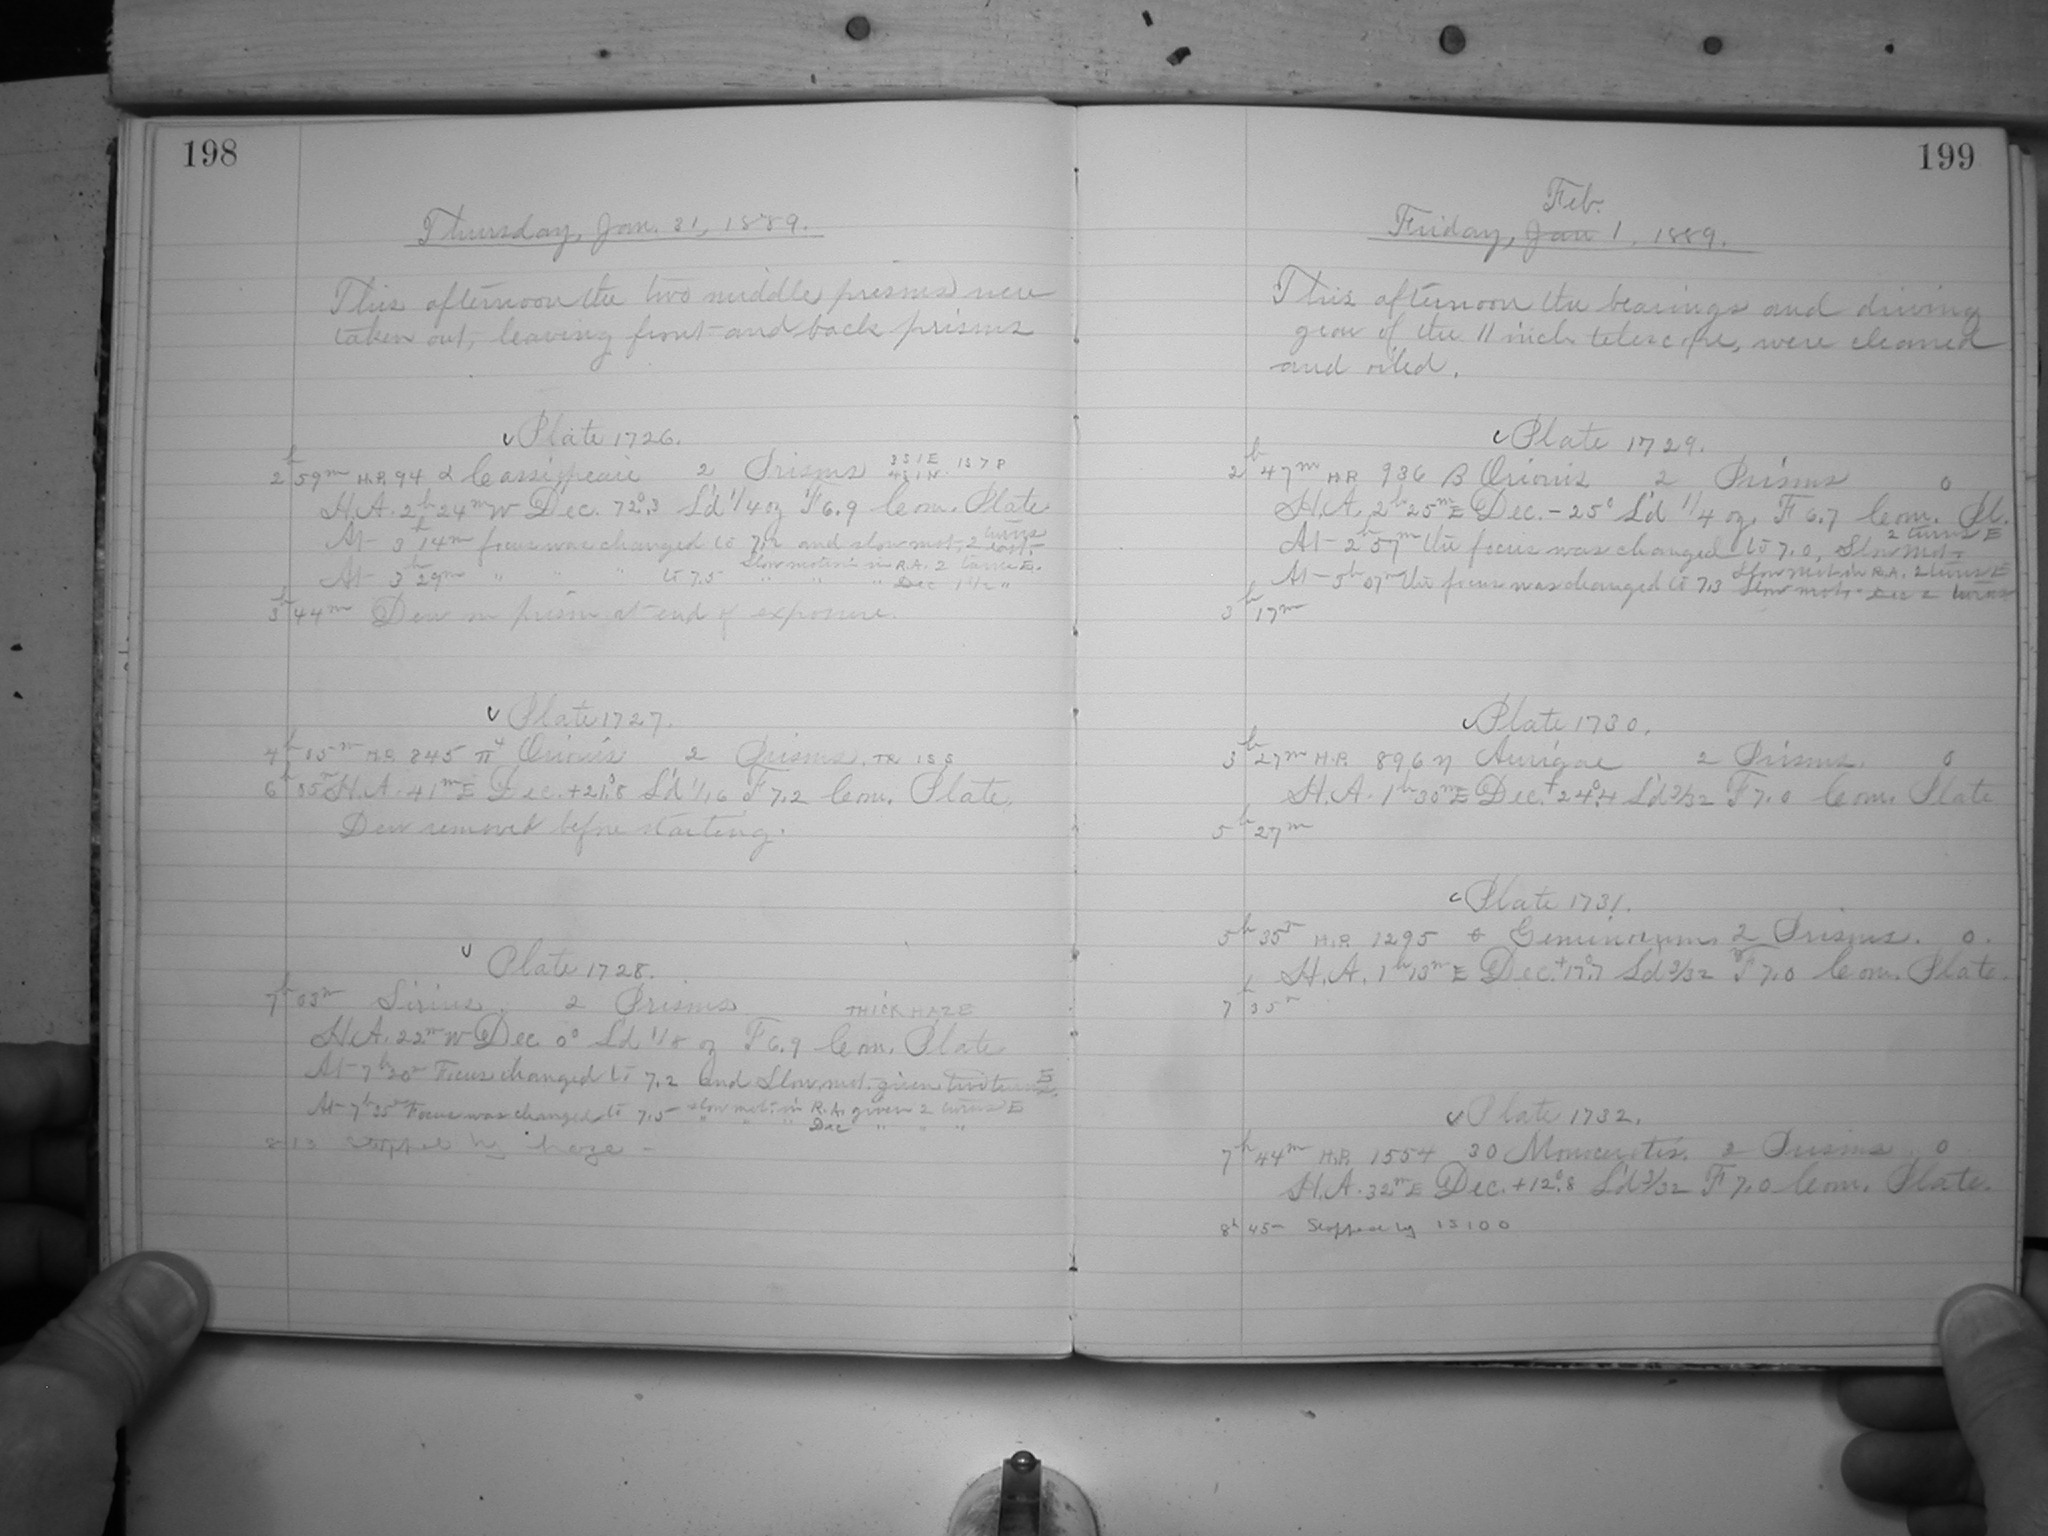 198
Thursday, Jan. 31, 1889.
This afternoon the two middle prisms were
taken out, leaving front and back prisms
Plate 1726.
2h 59m H.P. 94 α Cassiopeiae 2 Prisms
H.A. 2h 24m W Dec. 72°.3 L'd 1/4 oz F 6.9 Com. Plate
At 3h 14m focus was changed to 7.2 and slow mot. 2 turns east.
At 3h 29m " " " to 7.5 Slow motion in R.A. 2 turns E.
" " " Dec 1 1/2 "
3h 44m Dew on prism at end of exposure.
Plate 1727.
4h 05m H.P. 845 π4 Orionis 2 Prisms.
6h 05m H.A. 41m E Dec. +21°.8 L'd 1/16 F 7.2 Com. Plate.
Dew removed before starting.
Plate 1728.
7h 03m Sirius. 2 Prisms THICK HAZE
H.A. 22m W Dec. 0° L'd 1/8 oz F 6.9 Com. Plate
At 7h 20m Focus changed to 7.2 and Slow mot. given two turns E.
At 7h 35m Focus was changed to 7.5 slow mot. in R.A. given 2 turns E
" " " Dec " " "
8 13 stopped by haze -
199
Feb.
Friday, Jan 1, 1889.
This afternoon the bearings and driving
gear of the 11 inch telescope, were cleaned
and oiled.
Plate 1729.
2h 47m H.P. 936 β Orionis 2 Prisms 0
H.A. 2h 25m E Dec. -25° L'd 1/4 oz. F 6.7 Com. Pl.
At 2h 57m the focus was changed to 7.0, Slow mot. 2 turns E
At 3h 07m the focus was changed to 7.3 Slow mot. in R.A. 2 turns E
Slow mot. Dec 2 turns
3h 17m
Plate 1730.
3h 27m H.P. 896 η Aurigae 2 Prisms. 0
H.A. 1h 30m E Dec. +24°.4 L'd 3/32 F 7.0 Com. Plate
5h 27m
Plate 1731.
5h 35m H.P. 1295 Geminorum 2 Prisms. 0.
H.A. 1h 13m E Dec. +17°.7 L'd 3/32 F 7.0 Com. Plate.
7h 35m
Plate 1732.
7h 44m H.P. 1554 30 Monocerotis. 2 Prisms 0
H.A. 32m E Dec. +12°.8 L'd 3/32 F 7.0 Com. Plate.
8h 45m Stopped by 1S100